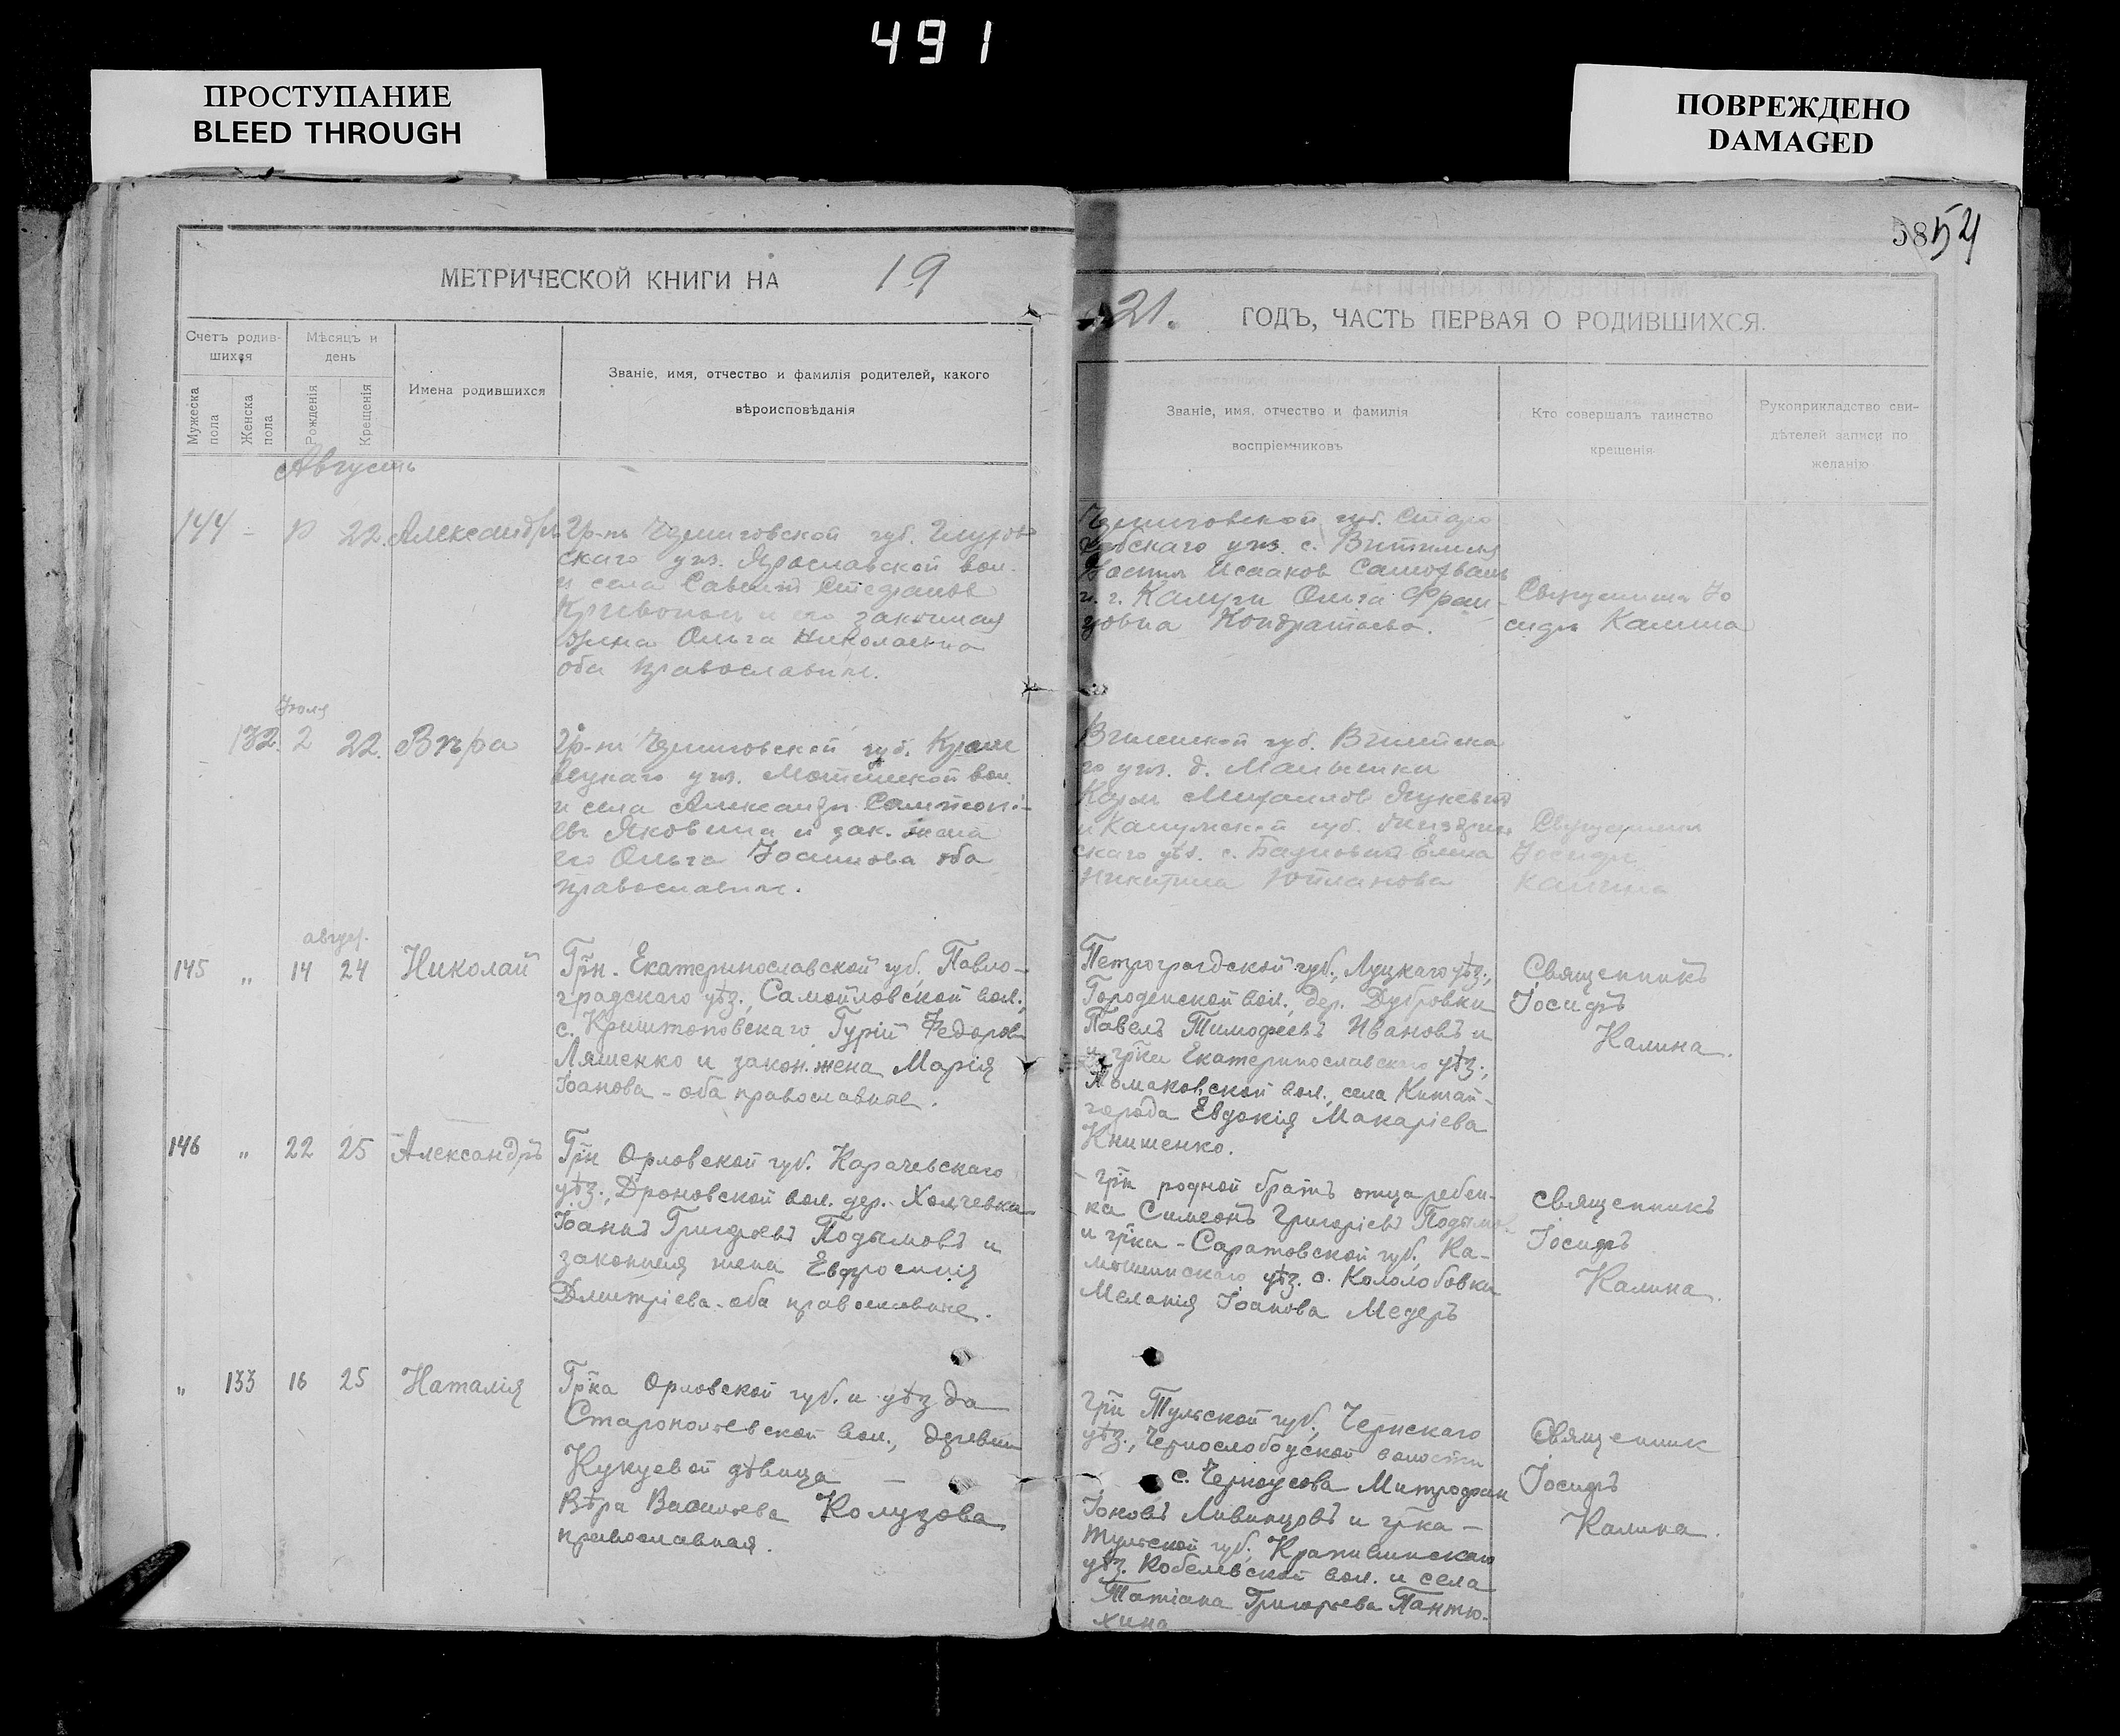 491
ПРОСТУПАНИЕ
BLEED THROUGH
ПОВРЕЖДЕНО
DAMAGED
5854
МЕТРИЧЕСКОЙ КНИГИ НА 19
21. ГОДЪ, ЧАСТЬ ПЕРВАЯ О РОДИВШИХСЯ.
Счетъ родив-
шихся
Мѣсяцъ и
день
Мужеска
пола
Женска
пола
Рожденія
Крещенія
Имена родившихся
Званіе, имя, отчество и фамилія родителей, какого
вѣроисповѣданія
Званіе, имя, отчество и фамилія
воспріемниковъ
Кто совершалъ таинство
крещенія
Рукоприкладство сви-
дѣтелей записи по
желанію
Августъ
144 - 22. Александръ
Гр-нъ Черниговской губ.
скаго уѣз. Ярославской вол.
и села Стефановъ
и его законная
жена Ольга Николаевна
оба православные.
Черниговской губ. Старо
дубскаго уѣз. с.
Исааков
и г. Калуги Ольга Фран
цовна Кондратьева.
Священникъ Іо
сифъ Калина
Іюля
132. 2 22. Вѣра
Гр-нъ Черниговской губ. Кроле
вецкаго уѣз. вол.
и села Александръ
евъ Яковина и зак. жена
его Ольга оба
православные.
Виленской губ. Виленска
го уѣз. д.
Карлъ Михайловъ
и Калужской губ. Жиздрин
скаго уѣз. с. Елена
Никитина
Священникъ
Іосифъ
Калина
авгус.
145 „ 14 24 Николай
Грн. Екатеринославской губ., Павло-
градскаго уѣз., Самойловской вол.,
с. Криштоповскаго Гурій Федоровъ
Ляшенко и закон. жена Марія
Іоанова - оба православные.
Петроградской губ., Луцкаго уѣз.,
Городенской вол., дер. Дубровки
Павелъ Тимофеевъ Ивановъ и
и грка Екатеринославскаго уѣз.,
Томаковской вол., села Китай-
города Евдокія Макаріева
Книшенко.
Священникъ
Іосифъ
Калина.
146 „ 22 25 Александръ
Грн Орловской губ. Карачевскаго
уѣз., Дроновской вол. дер. Холчевки
Іоанъ Григорьевъ Подымовъ и
законная жена Евфросинія
Дмитріева - оба православные.
- грн родной братъ отца ребен-
ка Симеонъ Григоріевъ Подымов
и грка - Саратовской губ., Ка-
мышинскаго уѣз. с. Кололобовки
Меланія Іоанова Медеръ
священникъ
Іосифъ
Калина.
„ 133 16 25 Наталія
Грка Орловской губ. и уѣзда
Старопольевской вол., деревни
Кукуевой дѣвица -
Вѣра Васильева Колузова
православная.
грн Тульской губ., Чернскаго
уѣз., Чернослободской волости
с. Черноусова Митрофан
Іоновъ Ливинцовъ и грка -
Тульской губ., Крапивинскаго
уѣз. Кобелевской вол. и села
Татіана Григорьева Пантю-
хина
Священник
Іосифъ
Калина.